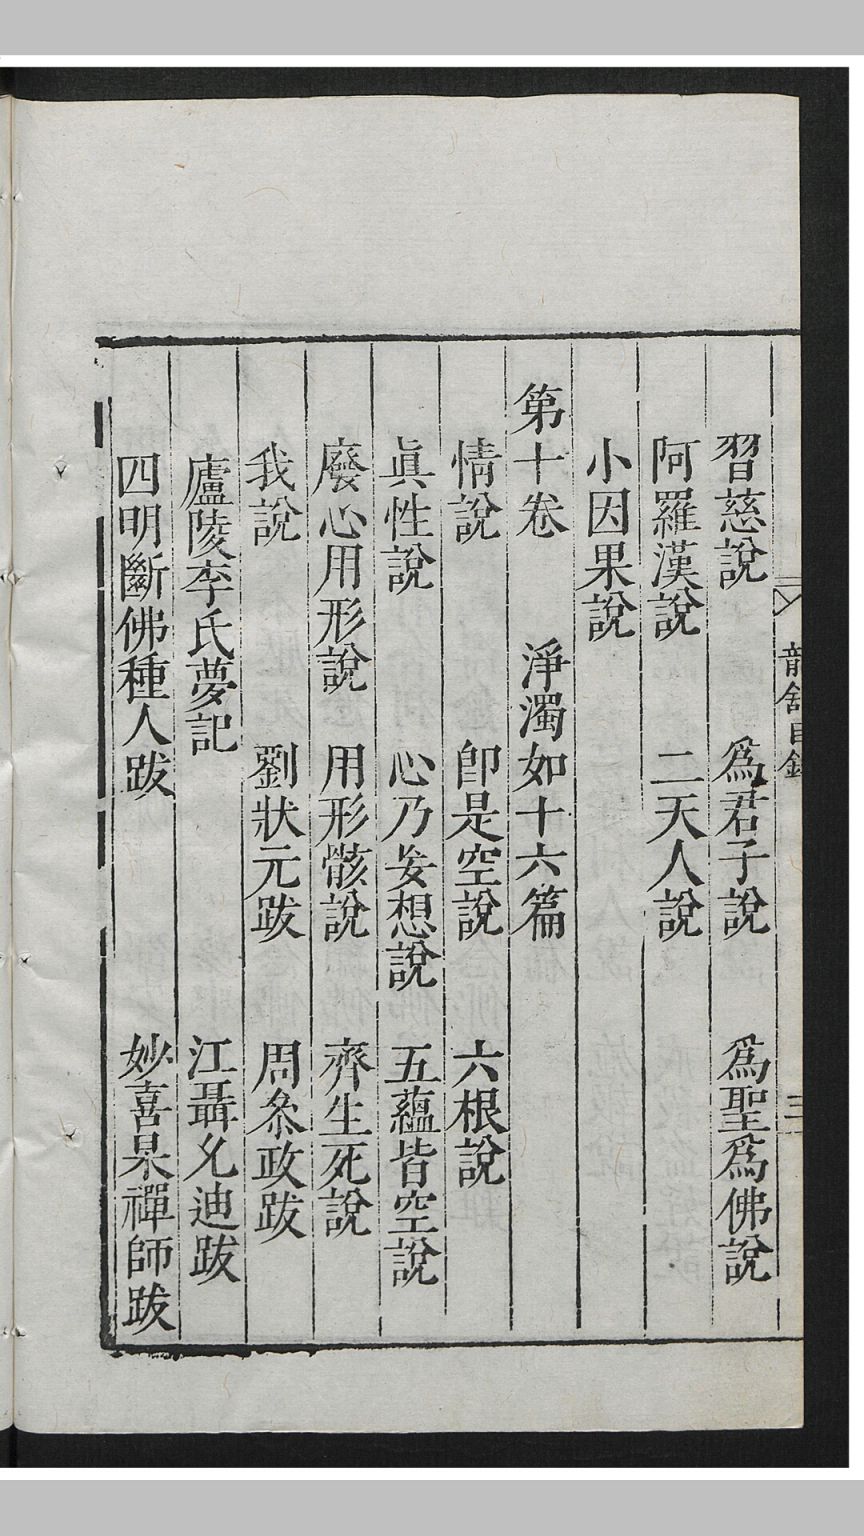 習慈說 爲君子說 爲聖爲佛說
阿羅漢說 二天人說
小因果說
第十卷 淨濁如十六篇
情說 卽是空說 六根說
眞性說 心乃妄想說 五蘊皆空說
廢心用形說 用形骸說 齊生死說
我說 劉狀元跋 周叅政跋
廬陵李氏夢記 江聶允迪跋
四明斷佛種人跋 妙喜杲禪師跋
龍舒目錄 三